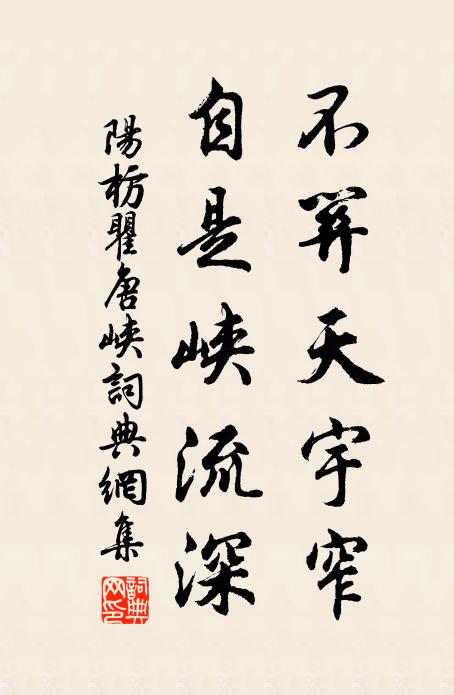 不關天宇窄
自是峽流深
陽枋瞿唐峽詞典網集
詞典网印